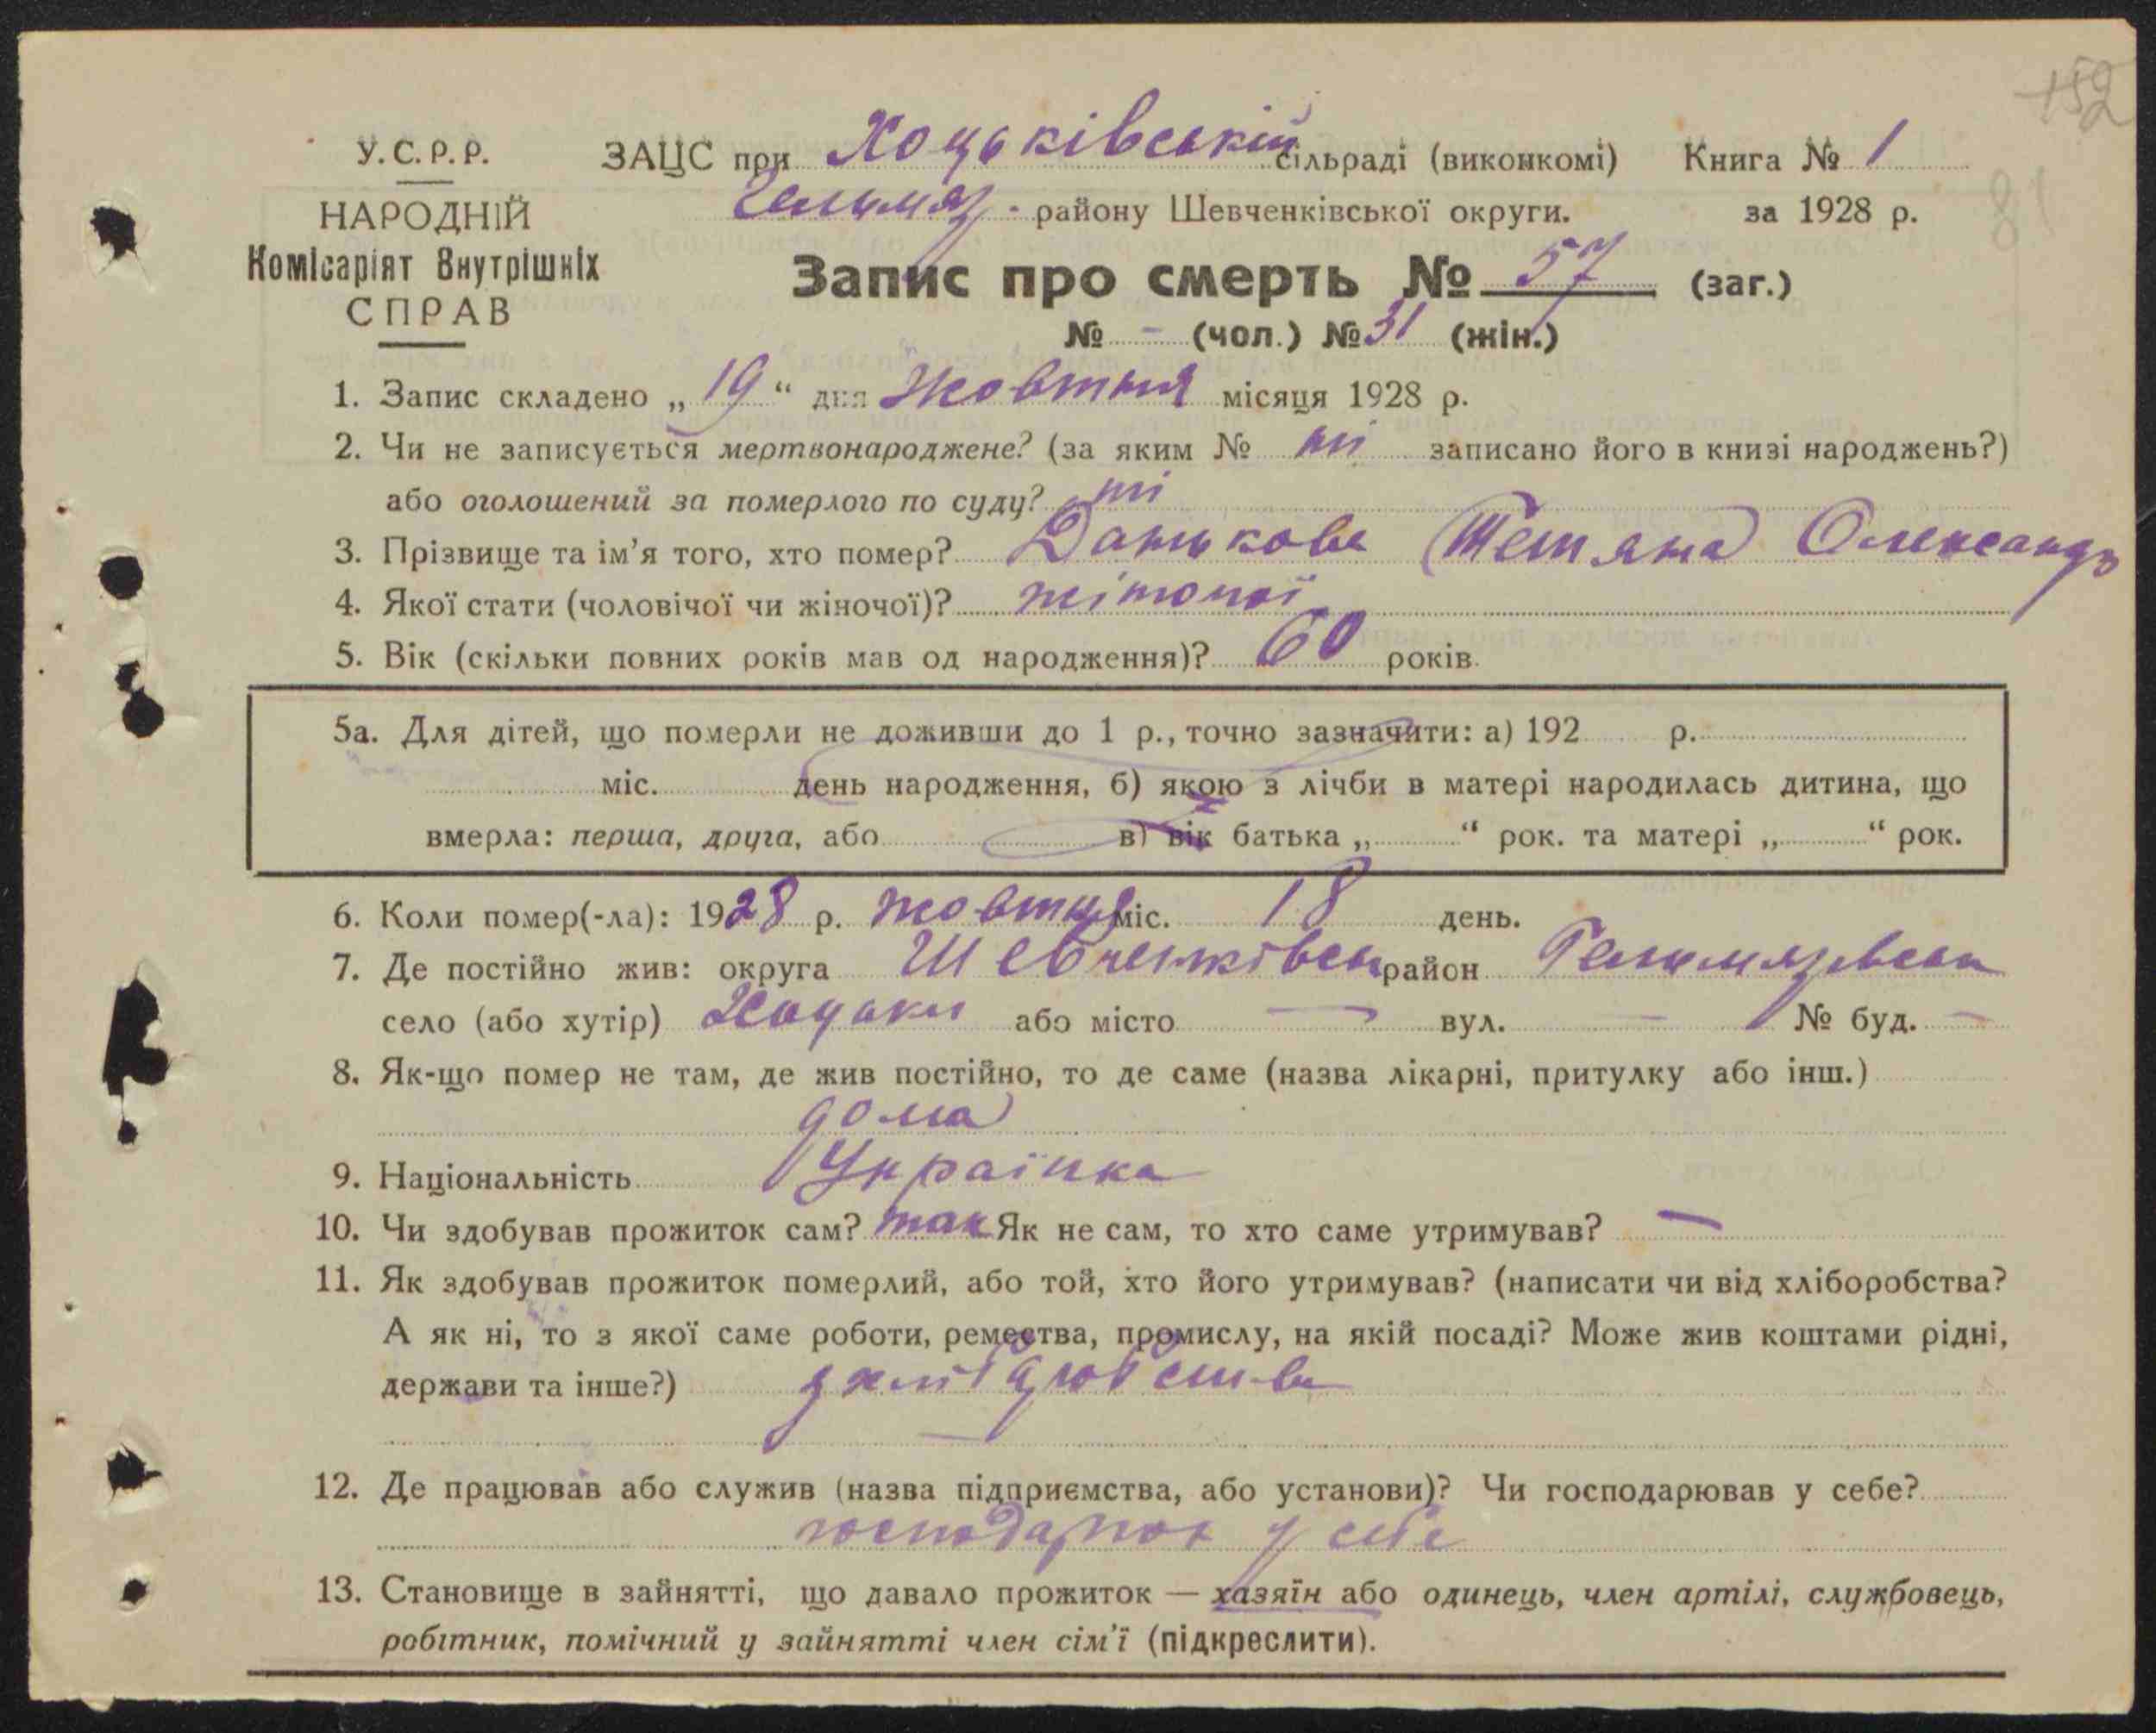 152
У.С.Р.Р. ЗАЦС при Хоцьківській сільраді (виконкомі) Книга № 1
81
Гельмяз. району Шевченківської округи. за 1928 р.
НАРОДНІЙ
Комісаріят Внутрішніх
СПРАВ
Запис про смерть № 57 (заг.)
№ - (чол.) № 31 (жін.)
1. Запис складено „ 19 “ дня Жовтня місяця 1928 р.
2. Чи не записується мертвонароджене? (за яким № ні записано його в книзі народжень?)
або оголошений за померлого по суду? ні
3. Прізвище та ім’я того, хто помер? Данькова Тетяна Олександр
4. Якої статі (чоловічої чи жіночої)? жіночої
5. Вік (скільки повних років мав од народження)? 60 років.
5а. Для дітей, що померли не доживши до 1 р., точно зазначити: а) 192 р.
міс. день народження, б) якою з лічби в матері народилась дитина, що
вмерла: перша, друга, або в) вік батька „ “ рок. та матері „ “ рок.
6. Коли помер(-ла): 1928 р. жовтня міс. 18 день.
7. Де постійно жив: округа Шевченківськ район Гельмязівськ
село (або хутір) Хоцьки або місто — вул. — № буд. —
8. Як-що помер не там, де жив постійно, то де саме (назва лікарні, притулку або інш.)
дома
9. Національність Українка
10. Чи здобував прожиток сам? так Як не сам, то хто саме утримував? —
11. Як здобував прожиток померлий, або той, хто його утримував? (написати чи від хліборобства?
А як ні, то з якої саме роботи, ремества, промислу, на якій посаді? Може жив коштами рідні,
держави та інше?)
12. Де працював або служив (назва підприємства, або установи)? Чи господарював у себе?
у себе
13. Становище в зайнятті, що давало прожиток — хазяїн або одинець, член артілі, службовець,
робітник, помічний у зайнятті член сім’ї (підкреслити).